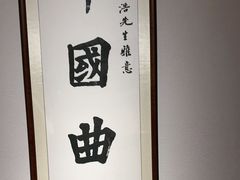 國曲
浩先生雅意